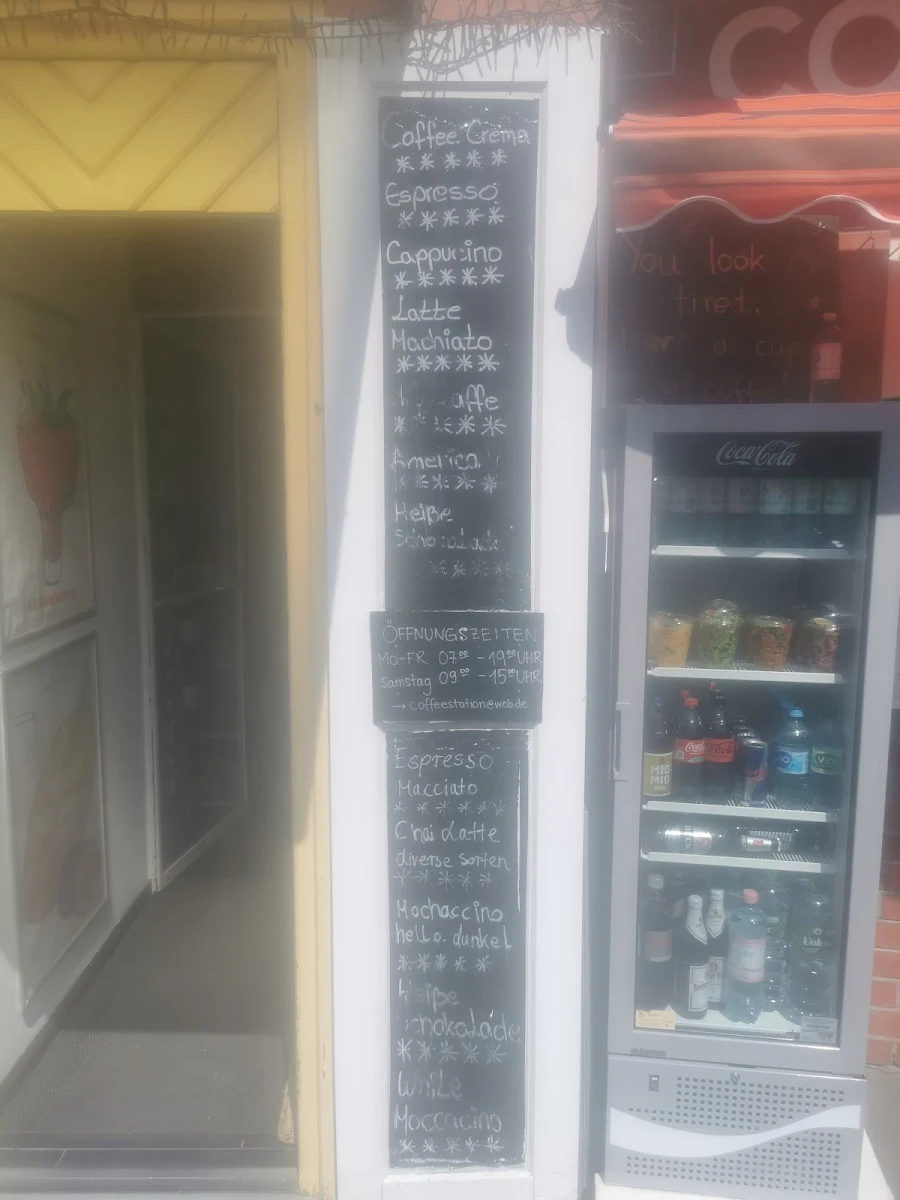 Coffee Crema
*****
Espresso
*****
Cappucino
*****
Latte
Machiato
*****
affe
*****
America
*****
Heiße
Schocolade
*****
ÖFFNUNGSZEITEN
MO-FR. 07⁰⁰ - 19⁰⁰UHR
Samstag 09⁰⁰ - 15⁰⁰UHR
→ coffeestation@web.de
Espresso
Macciato
*****
Chai Latte
diverse Sorten
*****
Mochaccino
hell o. dunkel
*****
Heiße
chokolade
*****
White
Moccacino
*****
CO
You look
tired.
a cup
Coca-Cola
MIO
MIO
Coca-Cola